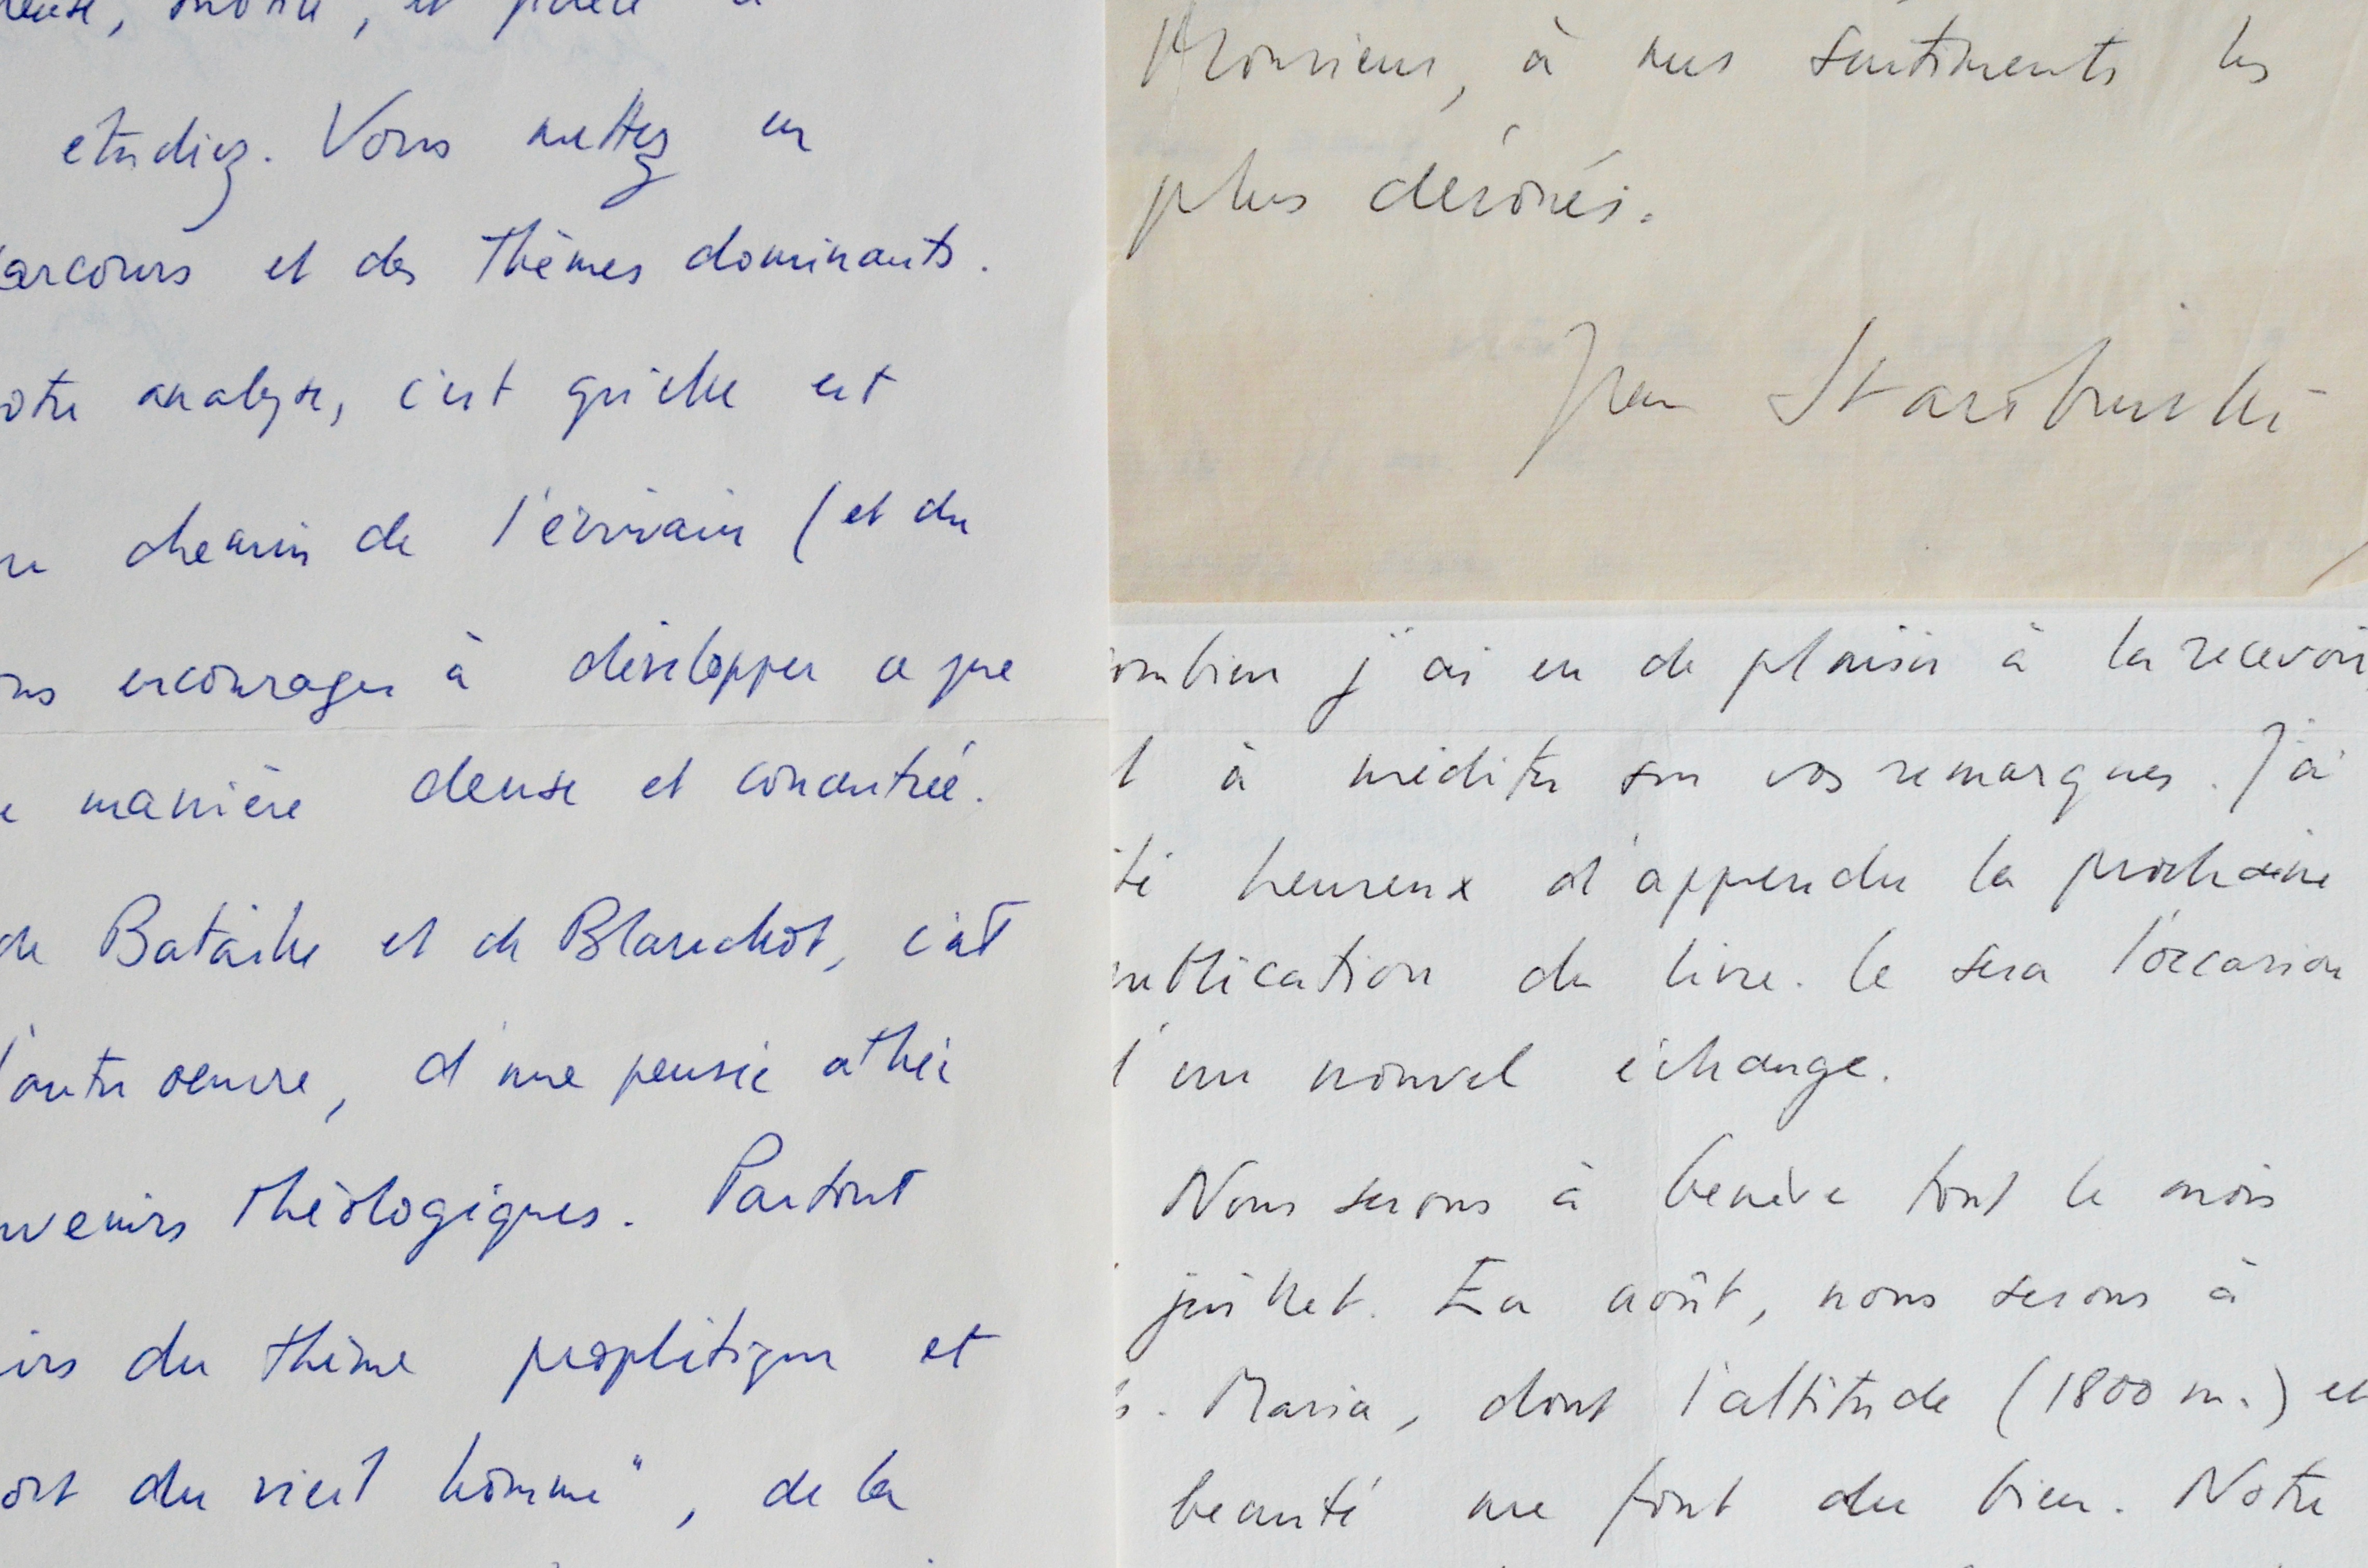 étudiez. Vous mettez en
parcours et des thèmes dominants.
votre analyse, c'est qu'elle est
chemin de l'écrivain (et du
encourager à développer ce que
manière dense et concentrée.
de Bataille et de Blanchot, c'est
l'autre oeuvre, d'une pensée athée
théologiques. Partout
du thème prophétique et
du vieil homme", de la
Monsieur, à mes sentiments les
plus dévoués.
Jean Starobinski
combien j'ai eu de plaisir à la recevoir,
et à méditer sur vos remarques. J'ai
été heureux d'apprendre la prochaine
publication du livre. Ce sera l'occasion
d'un nouvel échange.
Nous serons à Genève tout le mois
juillet. En août, nous serons à
Maria, dont l'altitude (1800 m.) et
beauté me font du bien. Notre